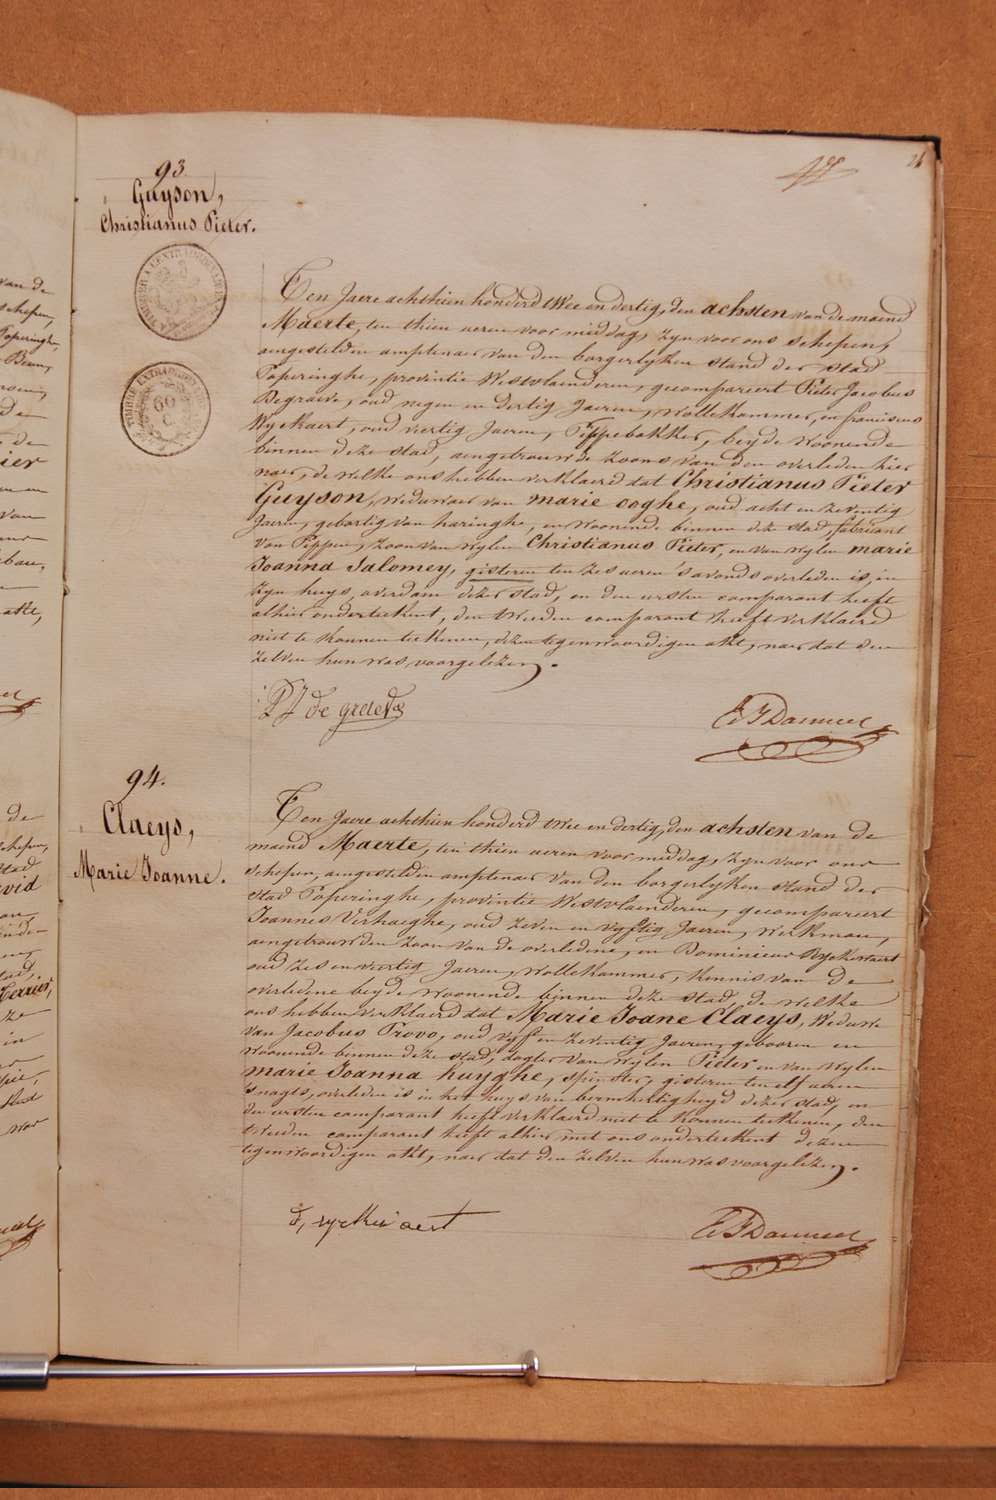 24
93
Guyson,
Christianus Pieter.
Ten Jaere achthien honderd twee en dertig, den achsten van de maend
Maerte, ten thien ueren voor middag, zyn voor ons schepen,
aengestelden amptenaer van den borgerlyken stand der stad
Poperinghe, provintie Westvlaenderen, gecompareert Pieter Jacobus
Degraeve, oud negen en dertig Jaeren, wollekammer, en franciscus
Ryckaert, oud viertig Jaeren, Pippebakker, beyde woonende
binnen deze stad, aengetrouwde zoons van den overleden hier
naer, de welke ons hebben verklaerd dat Christianus Pieter
Guyson, weduwaer van marie coghe, oud acht en zeventig
Jaeren, gebortig van haringhe, en woonende binnen deze stad, fabricant
van Pippen, zoon van wylen Christianus Pieter, en van wylen marie
Joanna Salomey, gisteren ten zes ueren 's avonds overleden is, in
zyn huys, overdam dezer stad, en den ersten comparant heeft
alhier onderteekent, den tweeden comparant heeft verklaerd
niet te konnen teekenen, dezen tegenwoordigen akt, naer dat den
zelven hun was voorgelezen.
PJ de graeve
94.
Claeys,
Marie Joanne.
Ten Jaere achthien honderd twee en dertig, den achsten van de
maend Maerte, ten thien ueren voor middag, zyn voor ons
schepen, aengestelden amptenaer van den borgerlyken stand der
stad Poperinghe, provintie Westvlaenderen, gecompareert
Joannes Verhaeghe, oud zeven en vyftig Jaeren, werkman,
aengetrouwden zoon van de overledene, en Dominicus Ryckewaert
oud zes en viertig Jaeren, wollekammer, kennis van de
overledene beyde woonende binnen deze stad, de welke
ons hebben verklaerd dat Marie Joane Claeys, weduwe
van Jacobus Provo, oud vyf en zeventig Jaeren, gebooren en
woonende binnen deze stad, dogter van wylen Pieter en van wylen
marie Joanna huyghe, spinster, gisteren ten elf ueren
's nagts, overleden is in het huys van bermhertigheyd dezer stad, en
den ersten comparant heeft verklaerd niet te konnen teekenen, den
tweeden comparant heeft alhier met ons onderteekent dezen
tegenwoordigen akt, naer dat den zelven hun was voorgelezen.